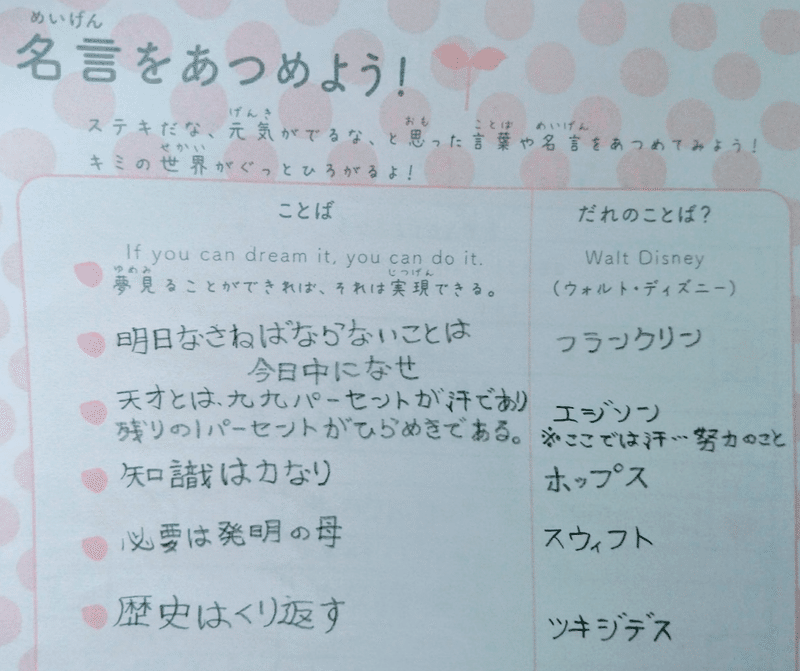 めいげん
名言をあつめよう!
ステキだな、元気がでるな、と思った言葉や名言をあつめてみよう!
キミの世界がぐっとひろがるよ!
ことば
だれのことば?
If you can dream it, you can do it.
夢見ることができれば、それは実現できる。
Walt Disney
(ウォルト・ディズニー)
明日なさねばならないことは
今日中になせ
フランクリン
天才とは、九九パーセントが汗であり
残りの1パーセントがひらめきである。
エジソン
※ここでは汗…努力のこと
知識は力なり
ホップス
必要は発明の母
スウィフト
歴史はくり返す
ツキジデス